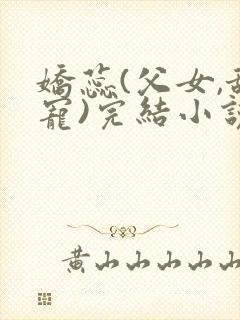 嬌蕊(父女,甜
寵)完結小說
黃山山山山山